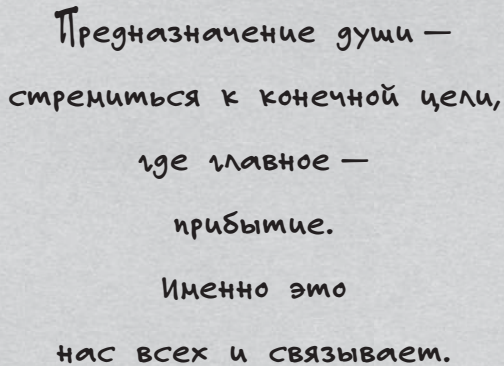 Предназначение души —
стремиться к конечной цели,
где главное —
прибытие.
Именно это
нас всех и связывает.